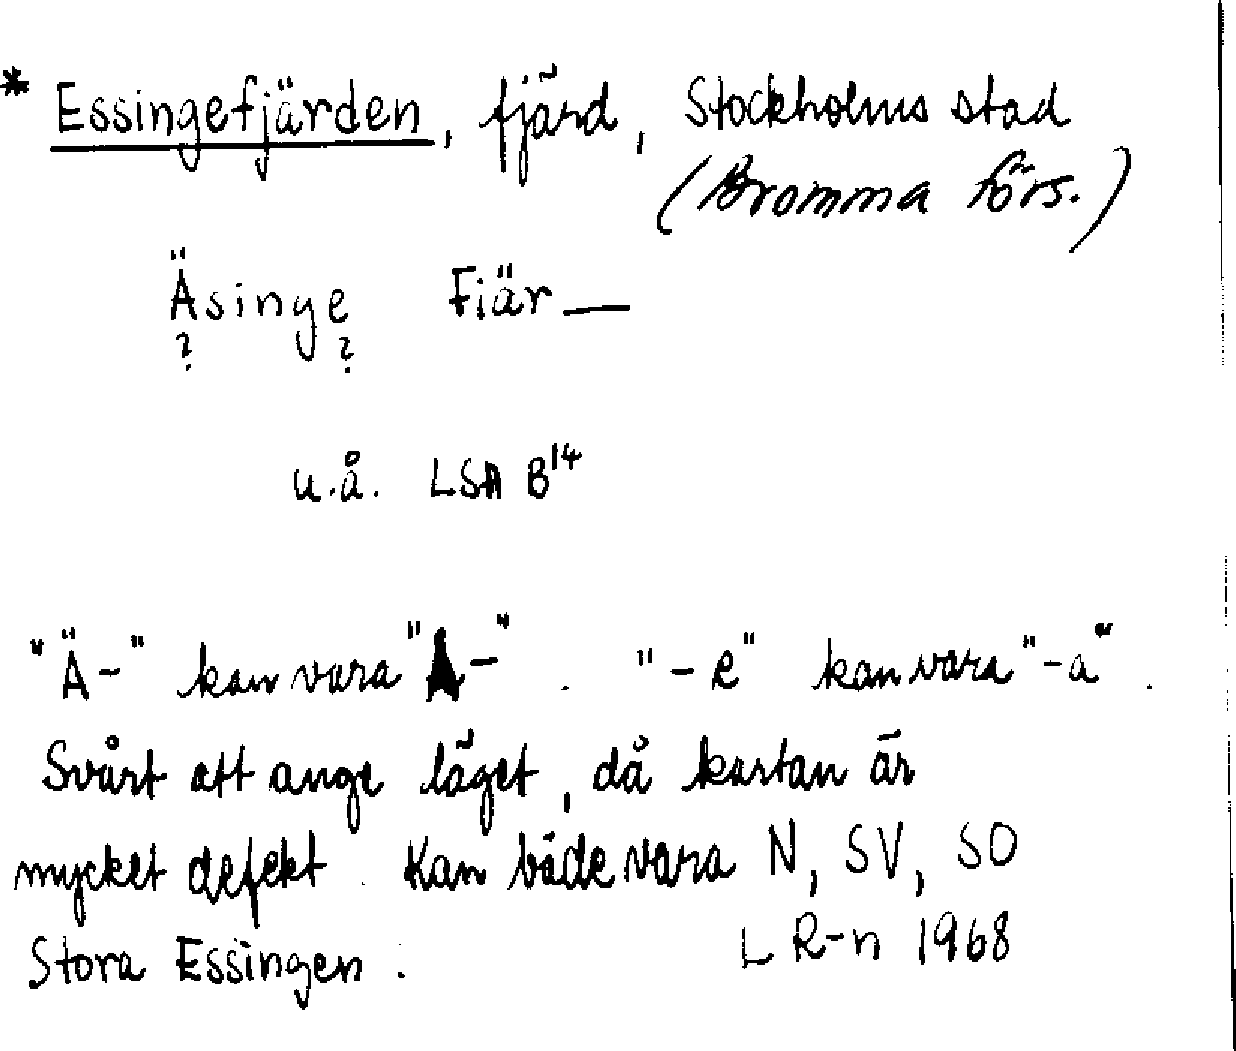 * Essingefjärden, fjärd, Stockholms stad
(Bromma förs.)
Äsinge Fiär—
? ?
u.å. LSA B14
"Ä-" kan vara "A-". "-e" kan vara "-a".
Svårt att ange läget, då kartan är
mycket defekt. Kan både vara N, SV, SO
Stora Essingen.
L R-n 1968